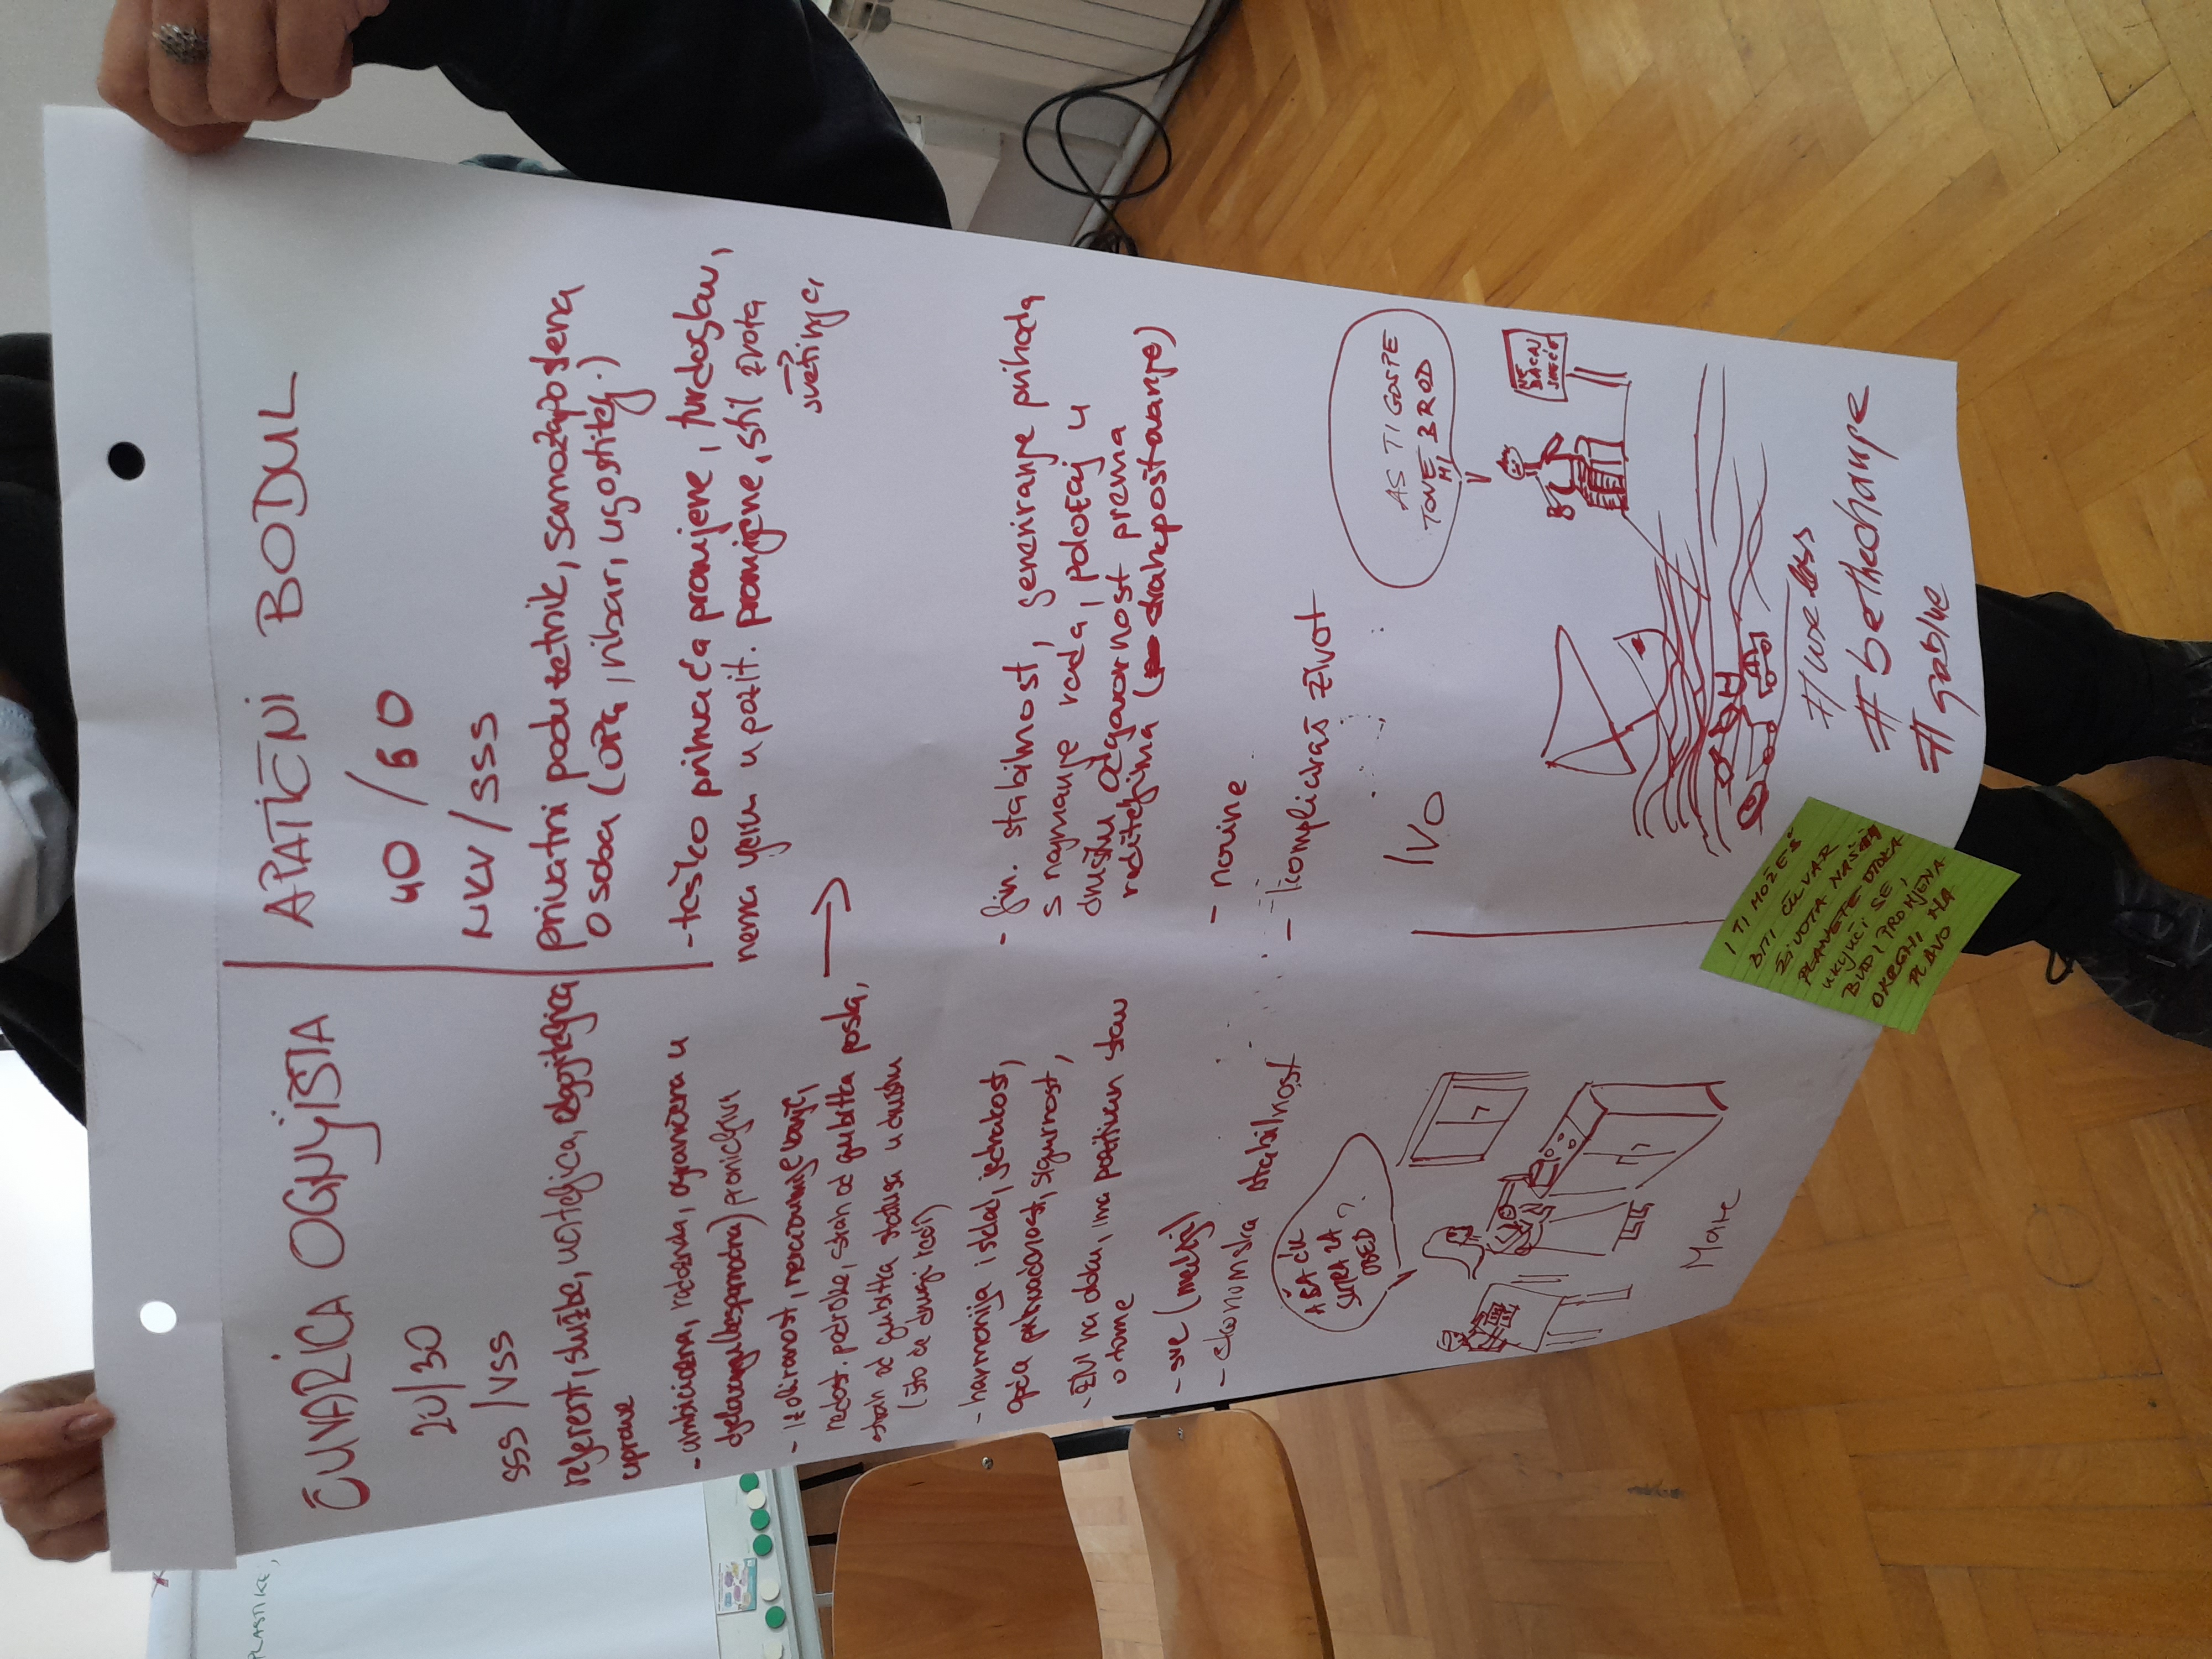 ČUVARICA OGNJIŠTA
20/30
SSS/VSS
referent, službe, učiteljica, odgojiteljica
uprave
- ambiciozna, radoznala, ograničena u
djelovanju (bespomoćna) pronicljiva
- Izoliranost, nerazumijevanje,
nedost. podrške, strah od gubitka posla,
strah od gubitka statusa u društvu
(što će drugi reći)
- harmonija i sklad, jednakost,
opća prihvaćenost, sigurnost,
- živi na otoku, ima pozitivan stav
o tome
- sve (mediji)
- ekonomska stabilnost
A ŠA ĆU
SUTRA ZA
OBED?
Mare
APATIČNI BODUL
40/60
NKV/SSS
privatni poduzetnik, samozaposlena
osoba (OPG, ribar, ugostitelj.)
- teško prihvaća promjene, tvrdoglav,
nema vjeru u pozit. promijene, stil života
svetinja,
- fin. stabilnost, generiranje prihoda
s najmanje rada, položaj u
društvu odgovornost prema
roditeljima (strahopoštovanje)
- novine
- kompliciraš život
IVO
AS TI GOSPE
TOVE BROD
MI
NE
BACAJ
SMEĆE
#use less
#bethechange
#goblue
I TI MOŽEŠ
BITI ČUVAR
ŽIVOTA NAŠEG
PLANETE OTOKA
UKLJUČI SE,
BUDI PROMJENA
OKRENI NA
PLAVO
PLASTIKE,